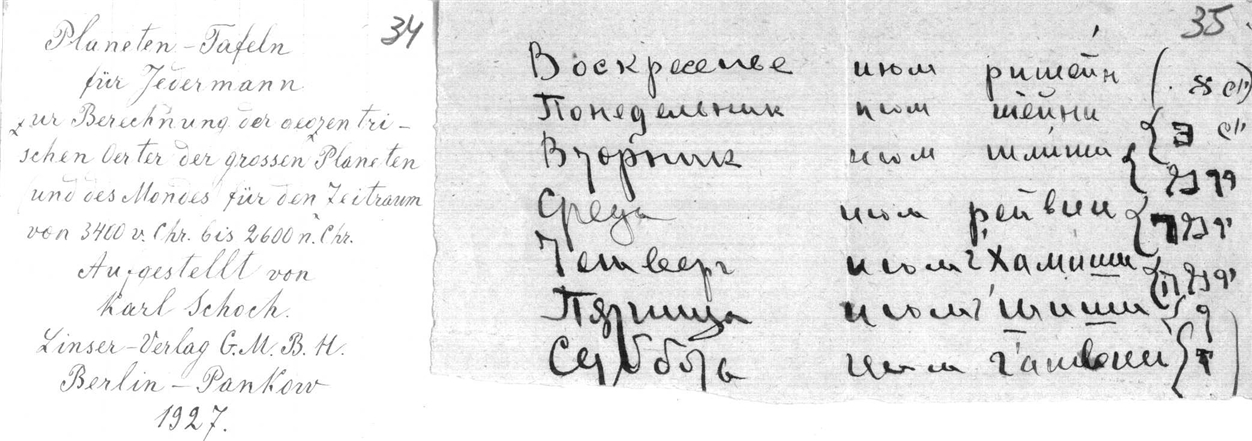 34
Planeten-Tafeln
für Jedermann
zur Berechnung der geozentri-
schen Oerter der grossen Planeten
und des Mondes für den Zeitraum
von 3400 v. Chr. bis 2600 n. Chr.
Aufgestellt von
Karl Schoch.
Linser-Verlag G.M.B.H.
Berlin-Pankow
1927.
35
Воскресенье июм ришейн
Понедельник июм шейни
Вторник июм шлиши
Среда июм рейвии
Четверг июм Хамиши
Пятница июм шиши
Суббота июм